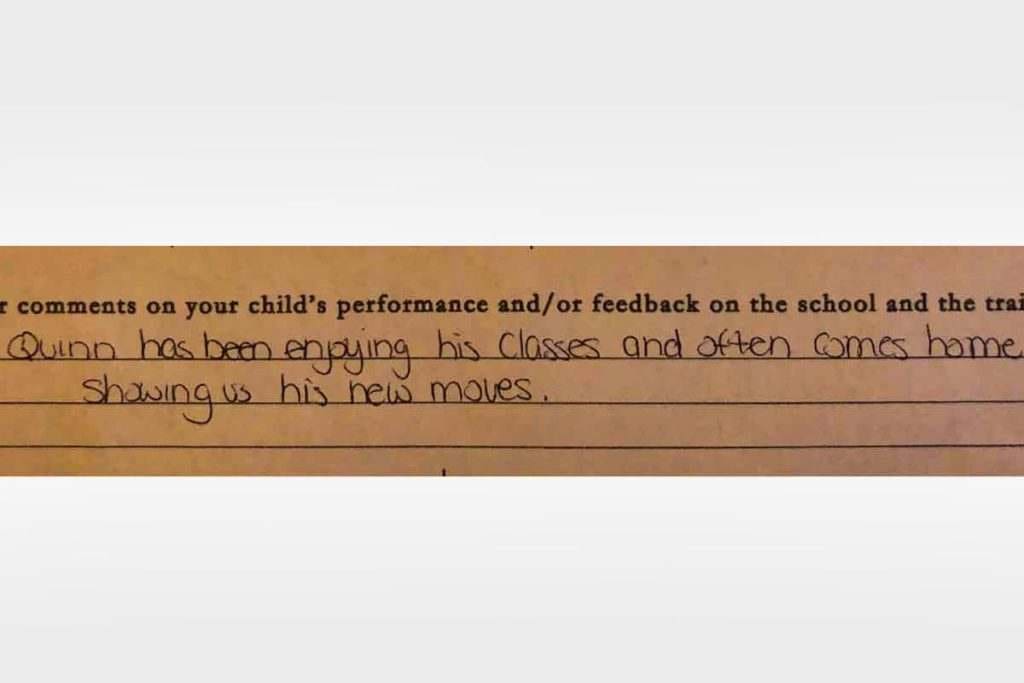 r comments on your child's performance and/or feedback on the school and the trai
Quinn has been enjoying his classes and often comes home
showing us his new moves.